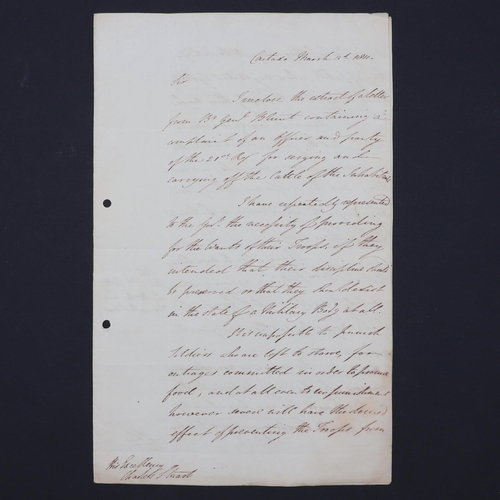 Cartaxo March 4th 1811.
Sir
I inclose the extract of a Letter
from Br. Genl. Blunt containing a
complaint of an Officer and party
of the Regt. for seizing and
carrying off the Cattle of the Inhabitants
I have repeatedly represented
to the Govt. the necessity of providing
for the Wants of their Troops, if they
intended that their discipline should
be preserved or that they should exist
in the state of a Military Body at all.
It is impossible to punish
Soldiers who are left to starve, for
outrages committed in order to procure
food, and at all events no punishment
however severe will have the desired
effect of preventing the Troops from
His Excellency
Charles Stuart